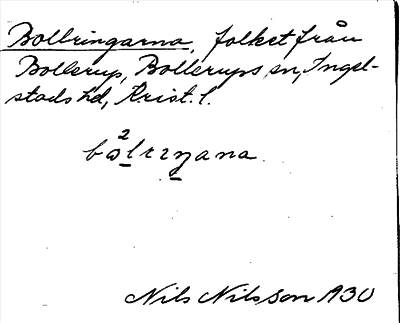 Bollringarna, folket från
Bollerup, Bollerups sn, Ingel-
stads hd, Krist. l.
Nils Nilsson A30